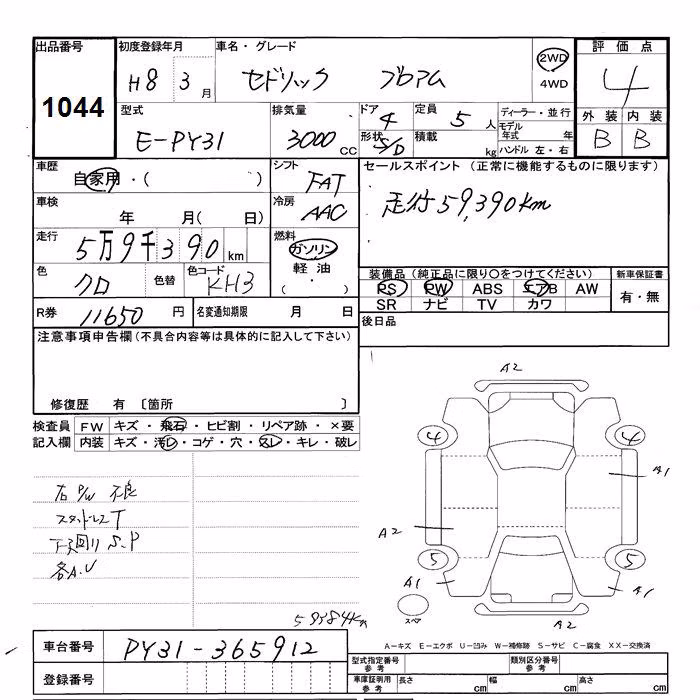 出品番号 初度登録年月 車名・グレード 2WD 評価点
1044 H8 3月 セドリック ブロアム 4WD 4
型式 排気量 ドア 定員 ディーラー・並行 外装 内装
E-PY31 3000CC 4 5人 モデル年式 年 B B
形状 S/D 積載 kg ハンドル 左・右
車歴 シフト セールスポイント (正常に機能するものに限ります)
自家用・( ) FAT
車検 冷房 走行59,390km
年 月( 日) AAC
走行 燃料
5万9千390km ガソリン
色 色替 色コード 軽油 装備品(純正品に限り○をつけてください) 新車保証書
クロ KH3 (・) PS PW ABS エアB AW 有・無
SR ナビ TV カワ
R券 11650円 名変通知期限 月 日 後日品
注意事項申告欄(不具合内容等は具体的に記入して下さい)
修復歴 有 〔箇所 〕
検査員 FW キズ・飛石・ヒビ割・リペア跡・×要
記入欄 内装 キズ・汚レ・コゲ・穴・スレ・キレ・破レ
A2
4 4
A1
右P/W 不良
スタッドレスT
下廻りS.P
各A.U
A2
5 5
A1 A1
スペア
A2
59384km
車台番号 PY31-365912
A-キズ E-エクボ U-凹み W-補修跡 S-サビ C-腐食 XX-交換済
登録番号
型式指定番号 参考 類別区分番号 参考
車庫証明用 参考 長さ cm 幅 cm 高さ cm